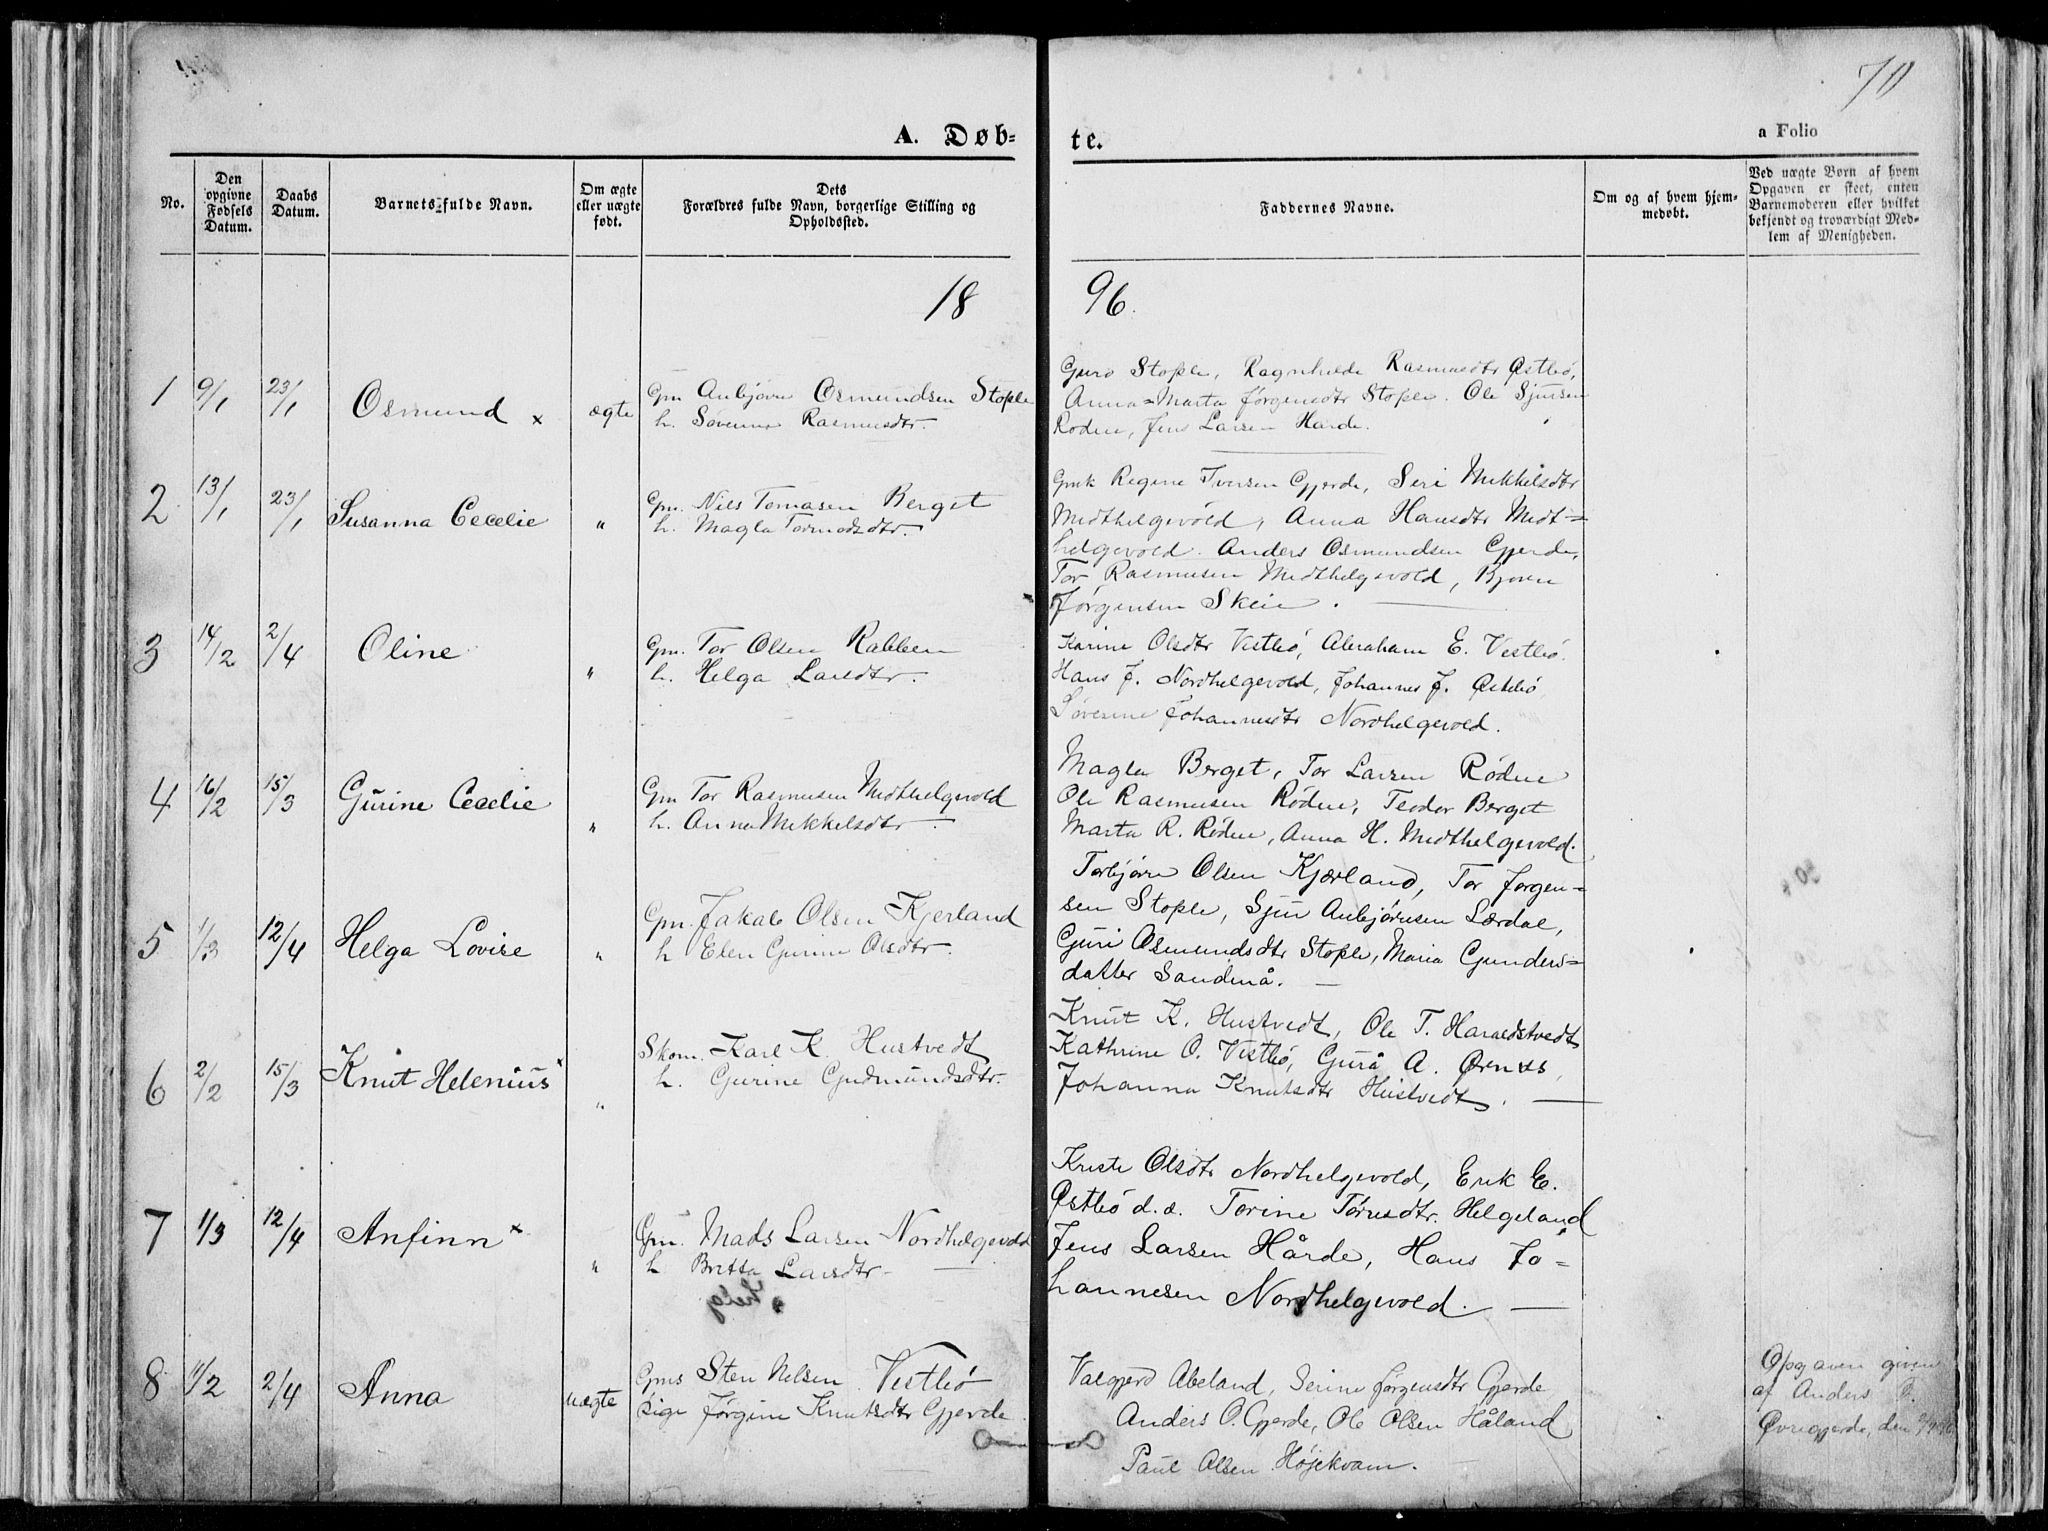 70
A. Døb=
te.
a Folio
No.
Den
opgivne
Fødsels
Datum.
Daabs
Datum.
Barnets fulde Navn.
Om ægte
eller uægte
født.
Dets
Forældres fulde Navn, borgerlige Stilling og
Opholdssted.
Faddernes Navne.
Om og af hvem hjem-
medøbt.
Ved uægte Børn af hvem
Opgaven er skeet, enten
Barnemoderen eller hvilket
bekjendt og troværdigt Med-
lem af Menigheden.
18
96.
1 9/1 23/1 Osmund x ægte
Gm Anbjørn Osmundsen Stople
h. Søverine Rasmusdtr.
Guro Stople, Ragnhilde Rasmusdtr Østbø,
Anna=Marta Jørgensdtr Stople. Ole Sjursen
Røden, Jens Larsen Hårde.
2 13/1 23/1 Susanna Cecelie "
Gm. Nils Tomasen Berget
h. Magla Tormodsdtr.
Gmk Regine Iversen Gjerde, Seri Mikkelsdtr
Midthelgevold, Anna Hansdtr Midt=
helgevold. Anders Osmundsen Gjerde,
Tor Rasmusen Midthelgevold, Bjørn
Jørgensen Skeie.
3 14/2 2/4 Oline "
Gm. Tor Olsen Rabben
h. Helga Larsdtr.
Karine Olsdtr Vestbø, Abraham E. Vestbø.
Hans J. Nordhelgevold, Johannes J. Østebø
Søverine Johannesdtr Nordhelgevold.
4 16/2 15/3 Gurine Cecelie "
Gm Tor Rasmusen Midthelgevold
h. Anna Mikkelsdtr.
Magla Berget, Tor Larsen Røden
Ole Rasmusen Røden, Teodor Berget
Marta R. Røden, Anna H. Midthelgevold.
5 1/3 12/4 Helga Lovise "
Gm. Jakob Olsen Kjerland
h Elen Gurine Olsdtr.
Torbjørn Olsen Kjærland, Tor Jørgen=
sen Stople, Sjur Anbjørnsen Lærdal,
Guri Osmundsdtr Stople, Maria Gunders=
datter Sandmå.
6 2/2 15/3 "Knut Helenius" "
Skom. Karl K. Hustvedt
h. Gurine Gudmundsdtr.
Knut K. Hustvedt, Ole T. Haraldstvedt
Kathrine O. Vestbø, Gurå A. Ørnæs,
Johanna Knutsdtr Hustvedt.
7 1/3 12/4 Anfinn x "
Gm. Mads Larsen Nordhelgevold
h Britta Larsdtr
Kriste Olsdtr Nordhelgevold, Erik E.
Østbø d.æ. Torine Tøresdtr. Helgeland
Jens Larsen Hårde, Hans Jo=
hannesen Nordhelgevold.
8 11/2 2/4 Anna uægte
Gms Sten Nelsen Vestbø
Pige Jørgine Knutsdtr Gjerde
Valgjerd Abeland, Serine Jørgensdtr Gjerde
Anders O. Gjerde, Ole Olsen Håland
Paul Olsen Højekvam.
Opgaven given
af Anders O.
Øvregjerde, den